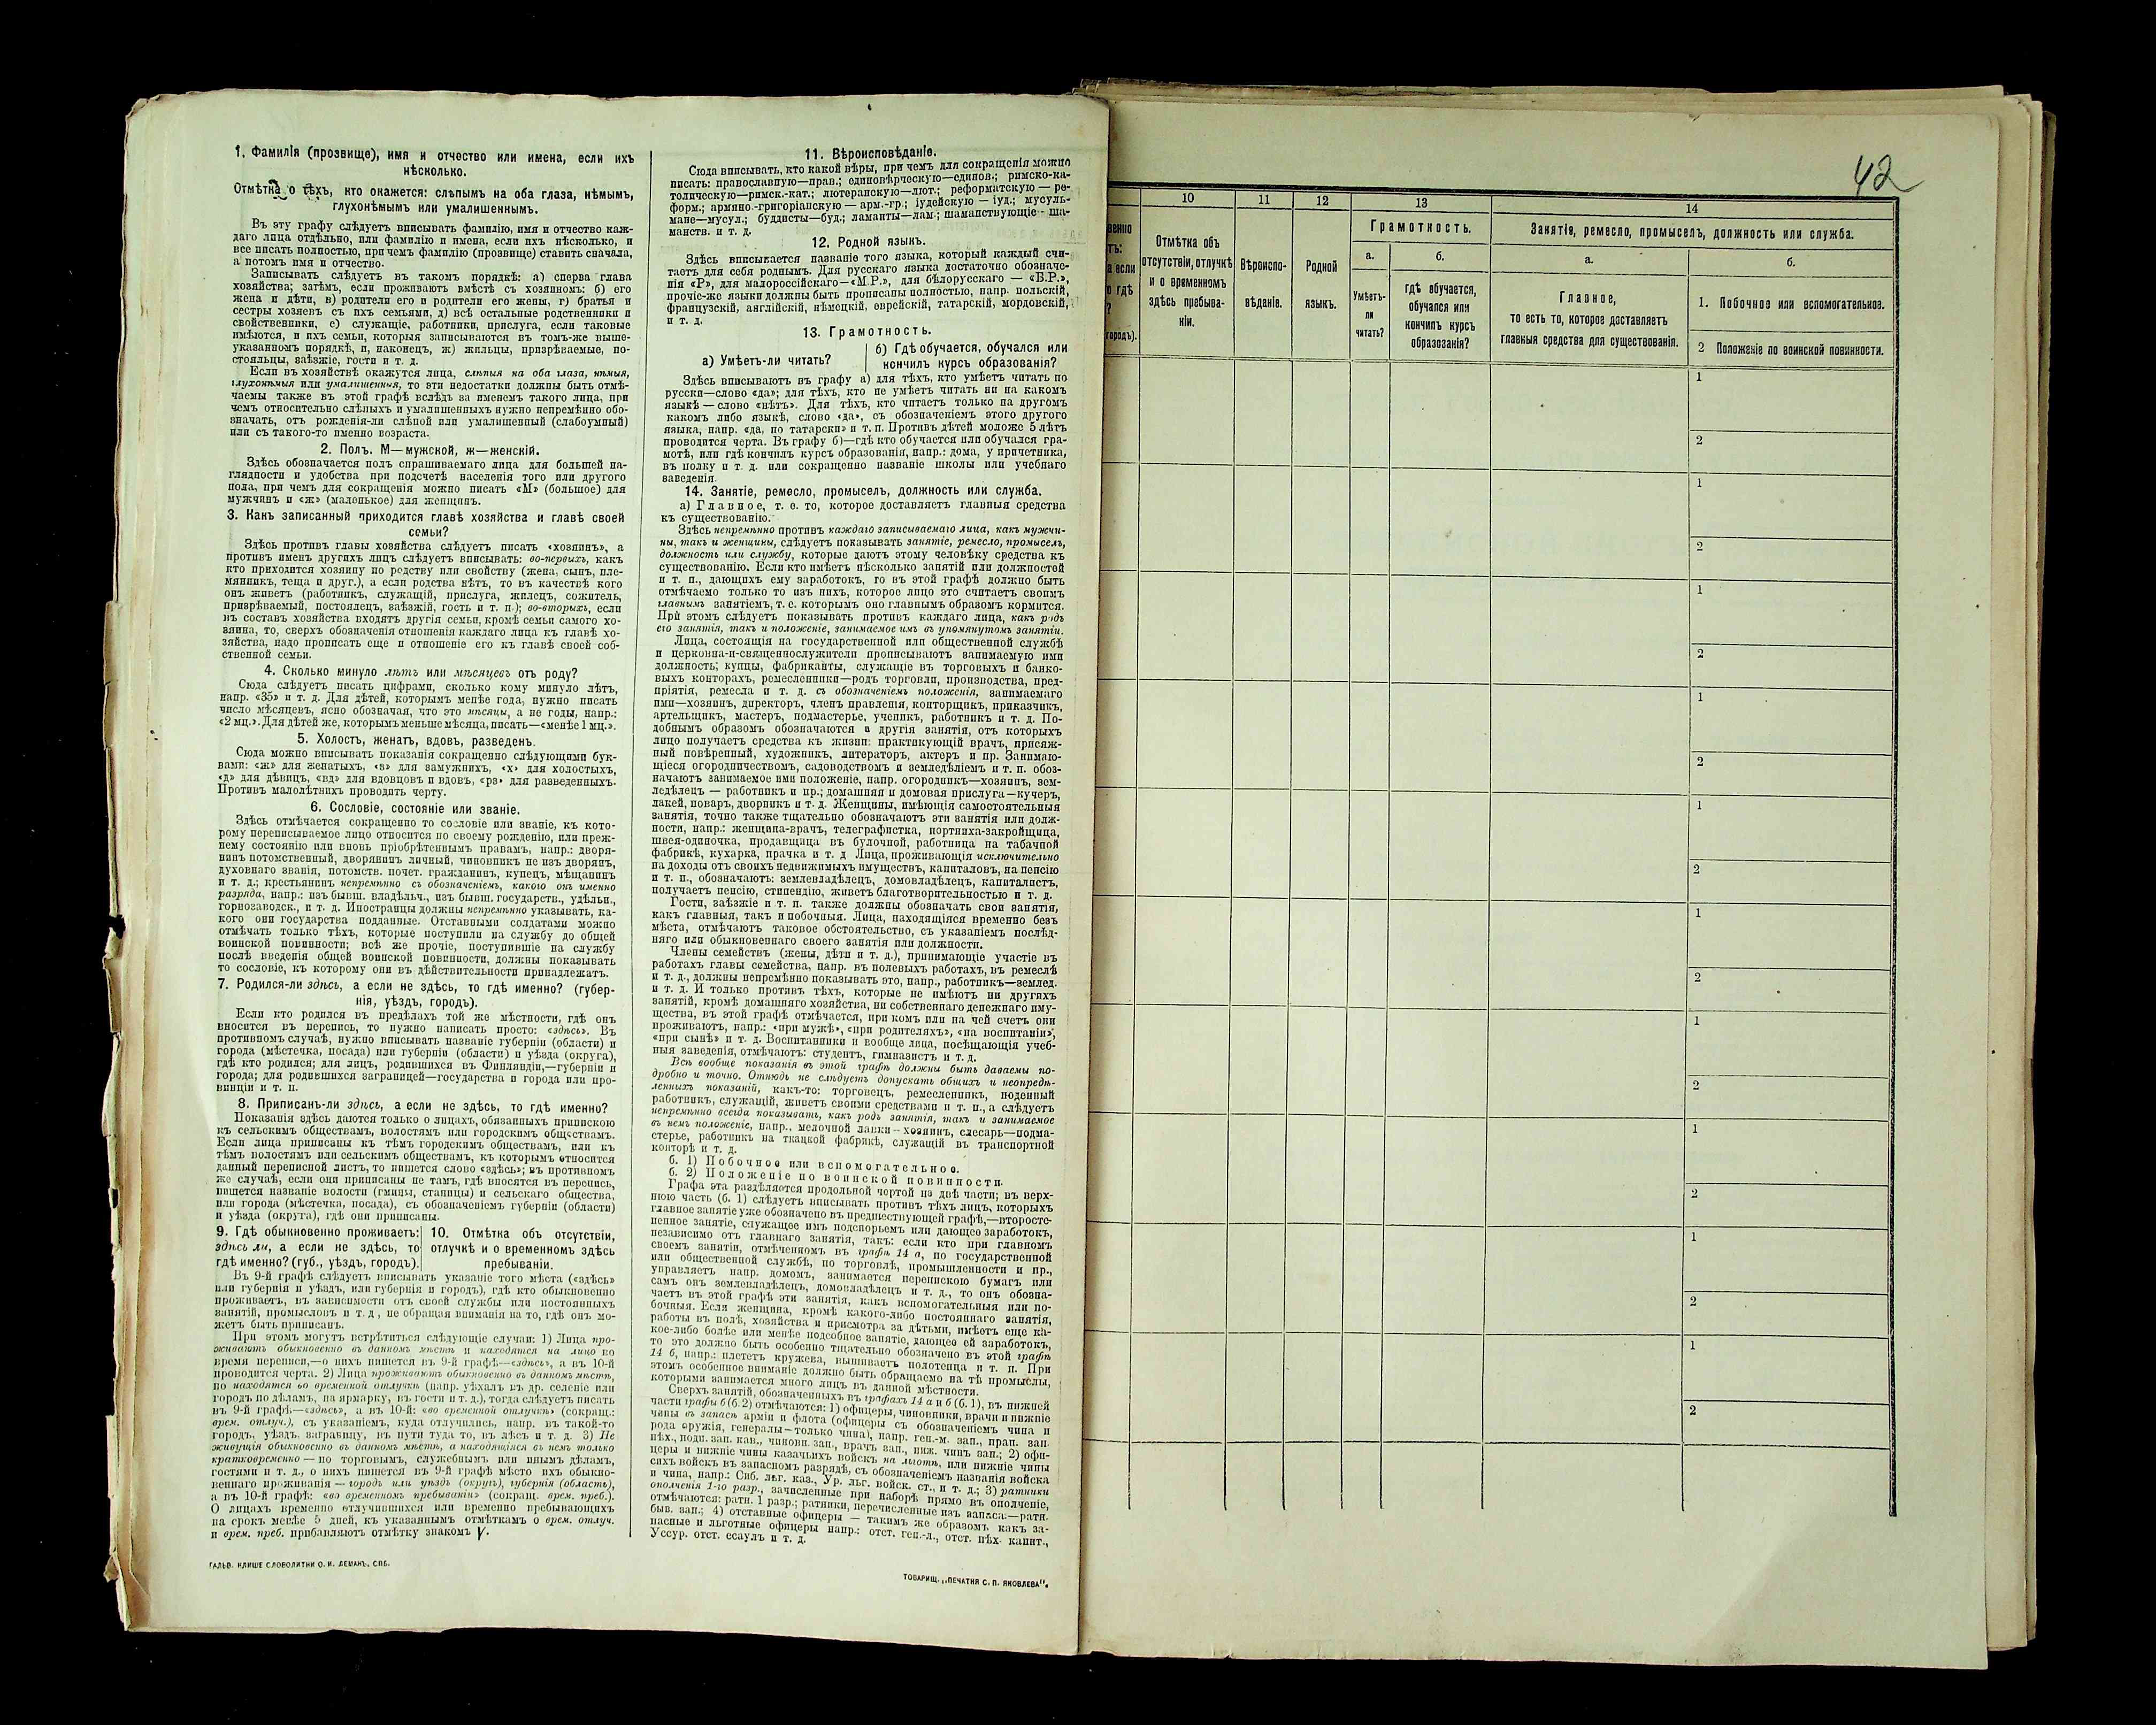 1. Фамилія (прозвище), имя и отчество или имена, если ихъ
нѣсколько.
Отмѣтка о тѣхъ, кто окажется: слѣпымъ на оба глаза, нѣмымъ,
глухонѣмымъ или умалишеннымъ.
Въ эту графу слѣдуетъ вписывать фамилію, имя и отчество каж-
даго лица отдѣльно, или фамилію и имена, если ихъ нѣсколько, и
все писать полностью, при чемъ фамилію (прозвище) ставить сначала,
а потомъ имя и отчество.
Записывать слѣдуетъ въ такомъ порядкѣ: а) сперва глава
хозяйства; затѣмъ, если проживаютъ вмѣстѣ съ хозяиномъ: б) его
жена и дѣти, в) родители его и родители его жены, г) братья и
сестры хозяевъ съ ихъ семьями, д) всѣ остальные родственники и
свойственники, е) служащіе, работники, прислуга, если таковые
имѣются, и ихъ семьи, которыя записываются въ томъ-же выше-
указанномъ порядкѣ, и, наконецъ, ж) жильцы, призрѣваемые, по-
стояльцы, заѣзжіе, гости и т. д.
Если въ хозяйствѣ окажутся лица, слѣпыя на оба глаза, нѣмыя,
глухонѣмыя или умалишенныя, то эти недостатки должны быть отмѣ-
чаемы также въ этой графѣ вслѣдъ за именемъ такого лица, при
чемъ относительно слѣпыхъ и умалишенныхъ нужно непремѣнно обо-
значать, отъ рожденія-ли слѣпой или умалишенный (слабоумный)
или съ такого-то именно возраста.
2. Полъ. М—мужской, ж—женскій.
Здѣсь обозначается полъ спрашиваемаго лица для большей на-
глядности и удобства при подсчетѣ населенія того или другого
пола, при чемъ для сокращенія можно писать «М» (большое) для
мужчинъ и «ж» (маленькое) для женщинъ.
3. Какъ записанный приходится главѣ хозяйства и главѣ своей
семьи?
Здѣсь противъ главы хозяйства слѣдуетъ писать «хозяинъ», а
противъ именъ другихъ лицъ слѣдуетъ вписывать: во-первыхъ, какъ
кто приходится хозяину по родству или свойству (жена, сынъ, пле-
мянникъ, теща и друг.), а если родства нѣтъ, то въ качествѣ кого
онъ живетъ (работникъ, служащій, прислуга, жилецъ, сожитель,
призрѣваемый, постоялецъ, заѣзжій, гость и т. п.); во-вторыхъ, если
въ составъ хозяйства входятъ другія семьи, кромѣ семьи самого хо-
зяина, то, сверхъ обозначенія отношенія каждаго лица къ главѣ хо-
зяйства, надо прописать еще и отношеніе его къ главѣ своей соб-
ственной семьи.
4. Сколько минуло лѣтъ или мѣсяцевъ отъ роду?
Сюда слѣдуетъ писать цифрами, сколько кому минуло лѣтъ,
напр. «35» и т. д. Для дѣтей, которымъ менѣе года, нужно писать
число мѣсяцевъ, ясно обозначая, что это мѣсяцы, а не годы, напр.:
«2 мц.». Для дѣтей же, которымъ меньше мѣсяца, писать—«менѣе 1 мц.».
5. Холостъ, женатъ, вдовъ, разведенъ.
Сюда можно вписывать показанія сокращенно слѣдующими бук-
вами: «ж» для женатыхъ, «з» для замужнихъ, «х» для холостыхъ,
«д» для дѣвицъ, «вд» для вдовцовъ и вдовъ, «рз» для разведенныхъ.
Противъ малолѣтнихъ проводить черту.
6. Сословіе, состояніе или званіе.
Здѣсь отмѣчается сокращенно то сословіе или званіе, къ кото-
рому переписываемое лицо относится по своему рожденію, или преж-
нему состоянію или вновь пріобрѣтеннымъ правамъ, напр.: дворя-
нинъ потомственный, дворянинъ личный, чиновникъ не изъ дворянъ,
духовнаго званія, потомств. почет. гражданинъ, купецъ, мѣщанинъ
и т. д.; крестьянинъ непремѣнно съ обозначеніемъ, какого онъ именно
разряда, напр.: изъ бывш. владѣльч., изъ бывш. государств., удѣльн.,
горнозаводск., и т. д. Иностранцы должны непремѣнно указывать, ка-
кого они государства подданные. Отставными солдатами можно
отмѣчать только тѣхъ, которые поступили на службу до общей
воинской повинности; всѣ же прочіе, поступившіе на службу
послѣ введенія общей воинской повинности, должны показывать
то сословіе, къ которому они въ дѣйствительности принадлежатъ.
7. Родился-ли здѣсь, а если не здѣсь, то гдѣ именно? (губер-
нія, уѣздъ, городъ).
Если кто родился въ предѣлахъ той же мѣстности, гдѣ онъ
вносится въ перепись, то нужно написать просто: «здѣсь». Въ
противномъ случаѣ, нужно вписывать названіе губерніи (области) и
города (мѣстечка, посада) или губерніи (области) и уѣзда (округа),
гдѣ кто родился; для лицъ, родившихся въ Финляндіи,—губерніи и
города; для родившихся заграницей—государства и города или про-
винціи и т. п.
8. Приписанъ-ли здѣсь, а если не здѣсь, то гдѣ именно?
Показанія здѣсь даются только о лицахъ, обязанныхъ припискою
къ сельскимъ обществамъ, волостямъ или городскимъ обществамъ.
Если лица приписаны къ тѣмъ городскимъ обществамъ, или къ
тѣмъ волостямъ или сельскимъ обществамъ, къ которымъ относится
данный переписной листъ, то пишется слово «здѣсь»; въ противномъ
же случаѣ, если они приписаны не тамъ, гдѣ вносятся въ перепись,
пишется названіе волости (гмины, станицы) и сельскаго общества,
или города (мѣстечка, посада), съ обозначеніемъ губерніи (области)
и уѣзда (округа), гдѣ они приписаны.
9. Гдѣ обыкновенно проживаетъ:
здѣсь ли, а если не здѣсь, то
гдѣ именно? (губ., уѣздъ, городъ).
10. Отмѣтка объ отсутствіи,
отлучкѣ и о временномъ здѣсь
пребываніи.
Въ 9-й графѣ слѣдуетъ вписывать указаніе того мѣста («здѣсь»
или губернія и уѣздъ, или губернія и городъ), гдѣ кто обыкновенно
проживаетъ, въ зависимости отъ своей службы или постоянныхъ
занятій, промысловъ и т. д., не обращая вниманія на то, гдѣ онъ мо-
жетъ быть приписанъ.
При этомъ могутъ встрѣтиться слѣдующіе случаи: 1) Лица про-
живаютъ обыкновенно въ данномъ мѣстѣ и находятся на лицо во
время переписи,—о нихъ пишется въ 9-й графѣ—«здѣсь», а въ 10-й
проводится черта. 2) Лица проживаютъ обыкновенно въ данномъ мѣстѣ,
но находятся во временной отлучкѣ (напр. уѣхалъ въ др. селеніе или
городъ по дѣламъ, на ярмарку, въ гости и т. д.), тогда слѣдуетъ писать
въ 9-й графѣ—«здѣсь», а въ 10-й: «во временной отлучкѣ» (сокращ.:
врем. отлуч.), съ указаніемъ, куда отлучились, напр. въ такой-то
городъ, уѣздъ, заграницу, въ пути туда то, въ лѣсъ и т. д. 3) Не
живущія обыкновенно въ данномъ мѣстѣ, а находящіяся въ немъ только
кратковременно — по торговымъ, служебнымъ или инымъ дѣламъ,
гостями и т. д., о нихъ пишется въ 9-й графѣ мѣсто ихъ обыкно-
веннаго проживанія — городъ или уѣздъ (округъ), губернія (область),
а въ 10-й графѣ: «во временномъ пребываніи» (сокращ. врем. преб.).
О лицахъ временно отлучившихся или временно пребывающихъ
на срокъ менѣе 5 дней, къ указаннымъ отмѣткамъ о врем. отлуч.
и врем. преб. прибавляютъ отмѣтку знакомъ V.
ГАЛЬВ. КЛИШЕ СЛОВОЛИТНИ О. И. ЛЕМАНЪ, СПБ.
11. Вѣроисповѣданіе.
Сюда вписывать, кто какой вѣры, при чемъ для сокращенія можно
писать: православную—прав.; единовѣрческую—единов.; римско-ка-
толическую—римск.-кат.; лютеранскую—лют.; реформатскую — ре-
форм.; армяно.-григоріанскую — арм.-гр.; іудейскую — іуд.; мусуль-
мане—мусул.; буддисты—буд.; ламаиты—лам.; шаманствующіе - ша-
манств. и т. д.
12. Родной языкъ.
Здѣсь вписывается названіе того языка, который каждый счи-
таетъ для себя роднымъ. Для русскаго языка достаточно обозначе-
нія «Р», для малороссійскаго—«М.Р.», для бѣлорусскаго — «Б.Р.»,
прочіе-же языки должны быть прописаны полностью, напр. польскій,
французскій, англійскій, нѣмецкій, еврейскій, татарскій, мордовскій,
и т. д.
13. Грамотность.
а) Умѣетъ-ли читать?
б) Гдѣ обучается, обучался или
кончилъ курсъ образованія?
Здѣсь вписываютъ въ графу а) для тѣхъ, кто умѣетъ читать по
русски—слово «да»; для тѣхъ, кто не умѣетъ читать ни на какомъ
языкѣ — слово «нѣтъ». Для тѣхъ, кто читаетъ только на другомъ
какомъ либо языкѣ, слово «да», съ обозначеніемъ этого другого
языка, напр. «да, по татарски» и т. п. Противъ дѣтей моложе 5 лѣтъ
проводится черта. Въ графу б)—гдѣ кто обучается или обучался гра-
мотѣ, или гдѣ кончилъ курсъ образованія, напр.: дома, у причетника,
въ полку и т. д. или сокращенно названіе школы или учебнаго
заведенія.
14. Занятіе, ремесло, промыселъ, должность или служба.
а) Главное, т. е. то, которое доставляетъ главныя средства
къ существованію.
Здѣсь непремѣнно противъ каждаго записываемаго лица, какъ мужчи-
ны, такъ и женщины, слѣдуетъ показывать занятіе, ремесло, промыселъ,
должность или службу, которые даютъ этому человѣку средства къ
существованію. Если кто имѣетъ нѣсколько занятій или должностей
и т. п., дающихъ ему заработокъ, то въ этой графѣ должно быть
отмѣчаемо только то изъ нихъ, которое лицо это считаетъ своимъ
главнымъ занятіемъ, т. е. которымъ оно главнымъ образомъ кормится.
При этомъ слѣдуетъ показывать противъ каждаго лица, какъ родъ
его занятія, такъ и положеніе, занимаемое имъ въ упомянутомъ занятіи.
Лица, состоящія на государственной или общественной службѣ
и церковно-и-священнослужители прописываютъ занимаемую ими
должность; купцы, фабриканты, служащіе въ торговыхъ и банко-
выхъ конторахъ, ремесленники—родъ торговли, производства, пред-
пріятія, ремесла и т. д. съ обозначеніемъ положенія, занимаемаго
ими—хозяинъ, директоръ, членъ правленія, конторщикъ, приказчикъ,
артельщикъ, мастеръ, подмастерье, ученикъ, работникъ и т. д. По-
добнымъ образомъ обозначаются и другія занятія, отъ которыхъ
лицо получаетъ средства къ жизни: практикующій врачъ, присяж-
ный повѣренный, художникъ, литераторъ, актеръ и пр. Занимаю-
щіеся огородничествомъ, садоводствомъ и земледѣліемъ и т. п. обоз-
начаютъ занимаемое ими положеніе, напр. огородникъ—хозяинъ, зем-
ледѣлецъ — работникъ и пр.; домашняя и домовая прислуга—кучеръ,
лакей, поваръ, дворникъ и т. д. Женщины, имѣющія самостоятельныя
занятія, точно также тщательно обозначаютъ эти занятія или долж-
ности, напр.: женщина-врачъ, телеграфистка, портниха-закройщица,
швея-одиночка, продавщица въ булочной, работница на табачной
фабрикѣ, кухарка, прачка и т. д Лица, проживающія исключительно
на доходы отъ своихъ недвижимыхъ имуществъ, капиталовъ, на пенсію
и т. п., обозначаютъ: землевладѣлецъ, домовладѣлецъ, капиталистъ,
получаетъ пенсію, стипендію, живетъ благотворительностью и т. д.
Гости, заѣзжіе и т. п. также должны обозначать свои занятія,
какъ главныя, такъ и побочныя. Лица, находящіяся временно безъ
мѣста, отмѣчаютъ таковое обстоятельство, съ указаніемъ послѣд-
няго или обыкновеннаго своего занятія или должности.
Члены семействъ (жены, дѣти и т. д.), принимающіе участіе въ
работахъ главы семейства, напр. въ полевыхъ работахъ, въ ремеслѣ
и т. д., должны непремѣнно показывать это, напр., работникъ—землед.
и т. д. И только противъ тѣхъ, которые не имѣютъ ни другихъ
занятій, кромѣ домашняго хозяйства, ни собственнаго денежнаго иму-
щества, въ этой графѣ отмѣчается, при комъ или на чей счетъ они
проживаютъ, напр.: «при мужѣ», «при родителяхъ», «на воспитаніи»,
«при сынѣ» и т. д. Воспитанники и вообще лица, посѣщающія учеб-
ныя заведенія, отмѣчаютъ: студентъ, гимназистъ и т. д.
Всѣ вообще показанія въ этой графѣ должны быть даваемы по-
дробно и точно. Отнюдь не слѣдуетъ допускать общихъ и неопредѣ-
ленныхъ показаній, какъ-то: торговецъ, ремесленникъ, поденный
работникъ, служащій, живетъ своими средствами и т. п., а слѣдуетъ
непремѣнно всегда показывать, какъ родъ занятія, такъ и занимаемое
въ немъ положеніе, напр., мелочной лавки—хозяинъ, слесарь—подма-
стерье, работникъ на ткацкой фабрикѣ, служащій въ транспортной
конторѣ и т. д.
б. 1) Побочное или вспомогательное.
б. 2) Положеніе по воинской повинности.
Графа эта раздѣляется продольной чертой на двѣ части; въ верх-
нюю часть (б. 1) слѣдуетъ вписывать противъ тѣхъ лицъ, которыхъ
главное занятіе уже обозначено въ предшествующей графѣ,—второсте-
пенное занятіе, служащее имъ подспорьемъ или дающее заработокъ,
независимо отъ главнаго занятія, такъ: если кто при главномъ
своемъ занятіи, отмѣченномъ въ графѣ 14 а, по государственной
или общественной службѣ, по торговлѣ, промышленности и пр.,
управляетъ напр. домомъ, занимается перепискою бумагъ или
самъ онъ землевладѣлецъ, домовладѣлецъ и т. д., то онъ обозна-
чаетъ въ этой графѣ эти занятія, какъ вспомогательныя или по-
бочныя. Если женщина, кромѣ какого-либо постояннаго занятія,
работы въ полѣ, хозяйства и присмотра за дѣтьми, имѣетъ еще ка-
кое-либо болѣе или менѣе подсобное занятіе, дающее ей заработокъ,
то это должно быть особенно тщательно обозначено въ этой графѣ
14 б, напр.: плететъ кружева, вышиваетъ полотенца и т. п. При
этомъ особенное вниманіе должно быть обращаемо на тѣ промыслы,
которыми занимается много лицъ въ данной мѣстности.
Сверхъ занятій, обозначенныхъ въ графахъ 14 а и б (б. 1), въ нижней
части графы б (б. 2) отмѣчаются: 1) офицеры, чиновники, врачи и нижніе
чины въ запасѣ арміи и флота (офицеры съ обозначеніемъ чина и
рода оружія, генералы—только чина), напр. ген.-м. зап., прап. зап.
пѣх., подп. зап. кав., чиновн. зап., врачъ зап., ниж. чинъ зап.; 2) офи-
церы и нижніе чины казачьихъ войскъ на льготѣ, или нижніе чины
сихъ войскъ въ запасномъ разрядѣ, съ обозначеніемъ названія войска
и чина, напр.: Сиб. льг. каз., Ур. льг. войск. ст., и т. д.; 3) ратники
ополченія 1-го разр., зачисленные при наборѣ прямо въ ополченіе,
отмѣчаются: ратн. 1 разр.; ратники, перечисленные изъ запаса:—ратн.
быв. зап.; 4) отставные офицеры — такимъ же образомъ, какъ за-
пасные и льготные офицеры напр.: отст. ген.-л., отст. пѣх. капит.,
Уссур. отст. есаулъ и т. д.
ТОВАРИЩ. „ПЕЧАТНЯ С. П. ЯКОВЛЕВА".
42
10
11
12
13
14
Отмѣтка объ
отсутствіи, отлучкѣ
и о временномъ
здѣсь пребыва-
ніи.
Вѣроиспо-
вѣданіе.
Родной
языкъ.
Грамотность.
а.
Умѣетъ-
ли
читать?
б.
гдѣ обучается,
обучался или
кончилъ курсъ
образованія?
Занятіе, ремесло, промыселъ, должность или служба.
а.
Главное,
то есть то, которое доставляетъ
главныя средства для существованія.
б.
1. Побочное или вспомогательное.
2 Положеніе по воинской повинности.
1
2
1
2
1
2
1
2
1
2
1
2
1
2
1
2
1
2
1
2